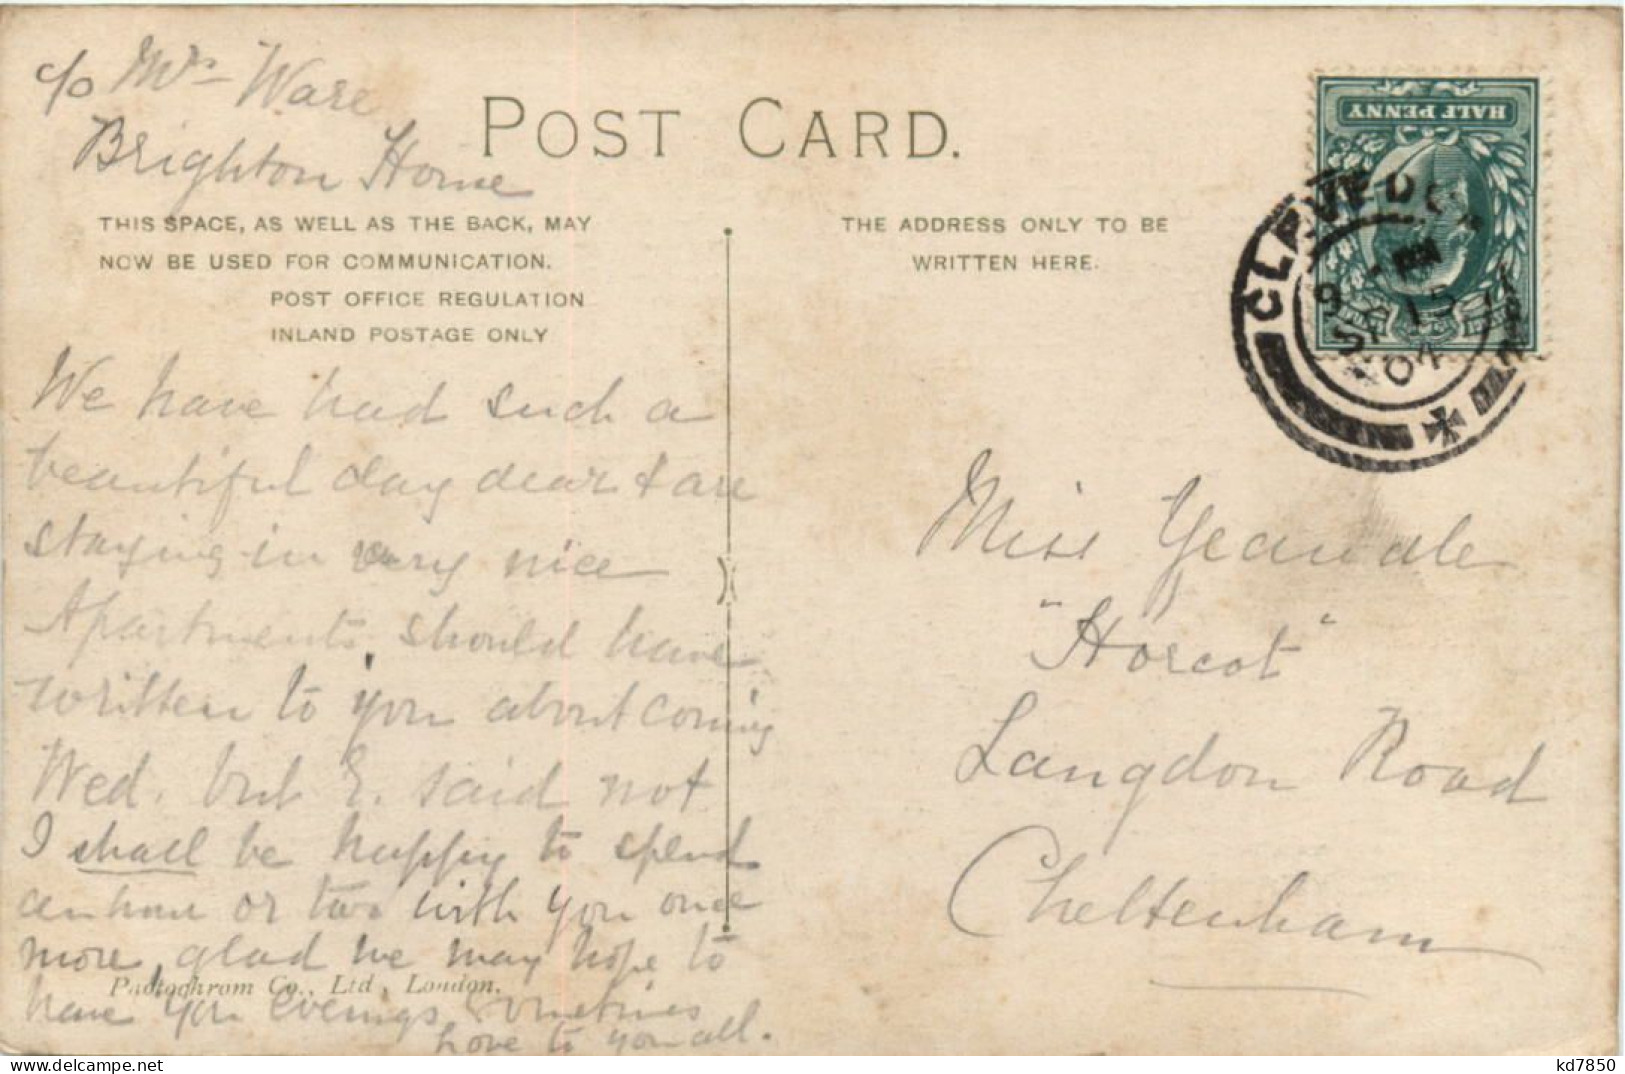 c/o Mrs Ware
Brighton Home
POST CARD.
THIS SPACE, AS WELL AS THE BACK, MAY
NOW BE USED FOR COMMUNICATION.
POST OFFICE REGULATION
INLAND POSTAGE ONLY
THE ADDRESS ONLY TO BE
WRITTEN HERE.
HALF PENNY
CLEVEDON
9 PM
SP 15
04
We have had such a
beautiful day dear & are
staying in very nice
Apartments, should have
written to you about coming
Wed. but E. said not
I shall be happy to spend
an hour or two with you once
more, glad we may hope to
have you evenings sometimes
love to you all.
Photochrom Co., Ltd., London.
Miss Yeandle
"Horcot"
Langdon Road
Cheltenham
kd7850